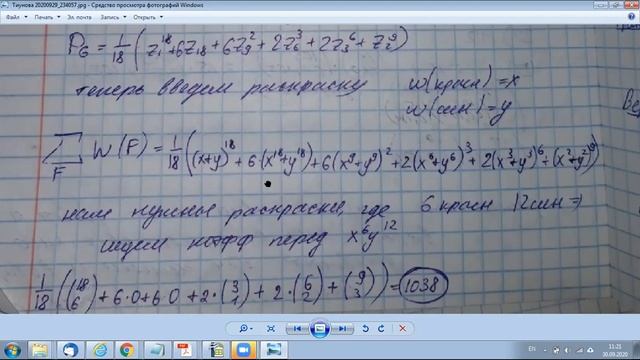 Тиунова 20200929_234057.jpg - Средство просмотра фотографий Windows
Файл Печать Эл. почта Запись Открыть
P₆ = 1/18 (z₁¹⁸ + 6z₁₈ + 6z₉² + 2z₆³ + 2z₃⁶ + z₂⁹)
теперь введем раскраску w(красн) = x
w(син) = y
∑_F W(F) = 1/18 ((x+y)¹⁸ + 6·(x¹⁸+y¹⁸) + 6(x⁹+y⁹)² + 2(x⁶+y⁶)³ + 2(x³+y³)⁶ + (x²+y²)⁹)
нам нужны раскраски, где 6 красн 12 син ⇒
ищем коэфф перед x⁶y¹²
1/18 ((18 6) + 6·0 + 6·0 + 2·(3 1) + 2·(6 2) + (9 3)) = 1038
EN
11:21
30.09.2020